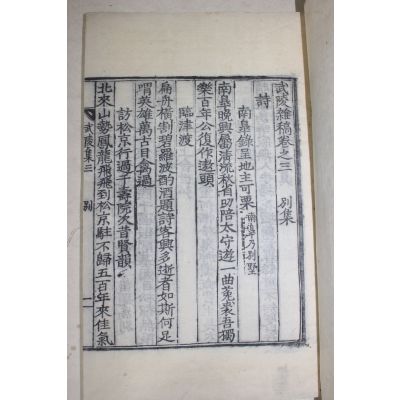 武陵雜稿卷之三 別集
詩
南皐錄呈地主可栗 南皐乃別墅
南皐晚興屬清流秋省助陪太守遊一曲菟裘吾獨
樂百年公復作遨頭
臨津渡
扁舟橫割碧羅波酌酒題詩客興多逝者如斯何足
喟英雄萬古目禽過
訪松京行過千壽院次昔賢韻
北來山勢鳳龍飛飛到松京駐不歸五百年來佳氣
武陵集三 別 一